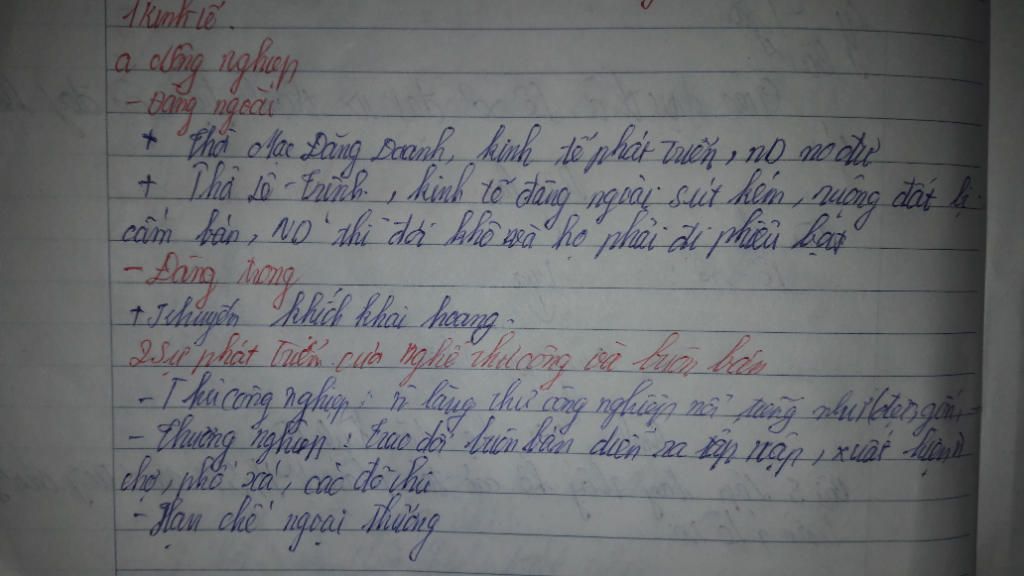 1 Kinh tế.
a Nông nghiệp
- Đàng ngoài
+ Thời Mạc Đăng Doanh, kinh tế phát triển, ND no đủ
+ Thời Lê - Trịnh, kinh tế đàng ngoài sút kém, ruộng đất bị
cầm bán, ND thì đói khổ và họ phải đi phiêu bạt
- Đàng trong
+ Khuyến khích khai hoang.
2 Sự phát triển của nghề thủ công và buôn bán
- Thủ công nghiệp: n làng thủ công nghiệp nổi tiếng như (dệt, gốm, -
- Thương nghiệp: trao đổi buôn bán diễn ra tấp nập, xuất hiện n
chợ, phố xá, các đô thị
- Hạn chế ngoại thương